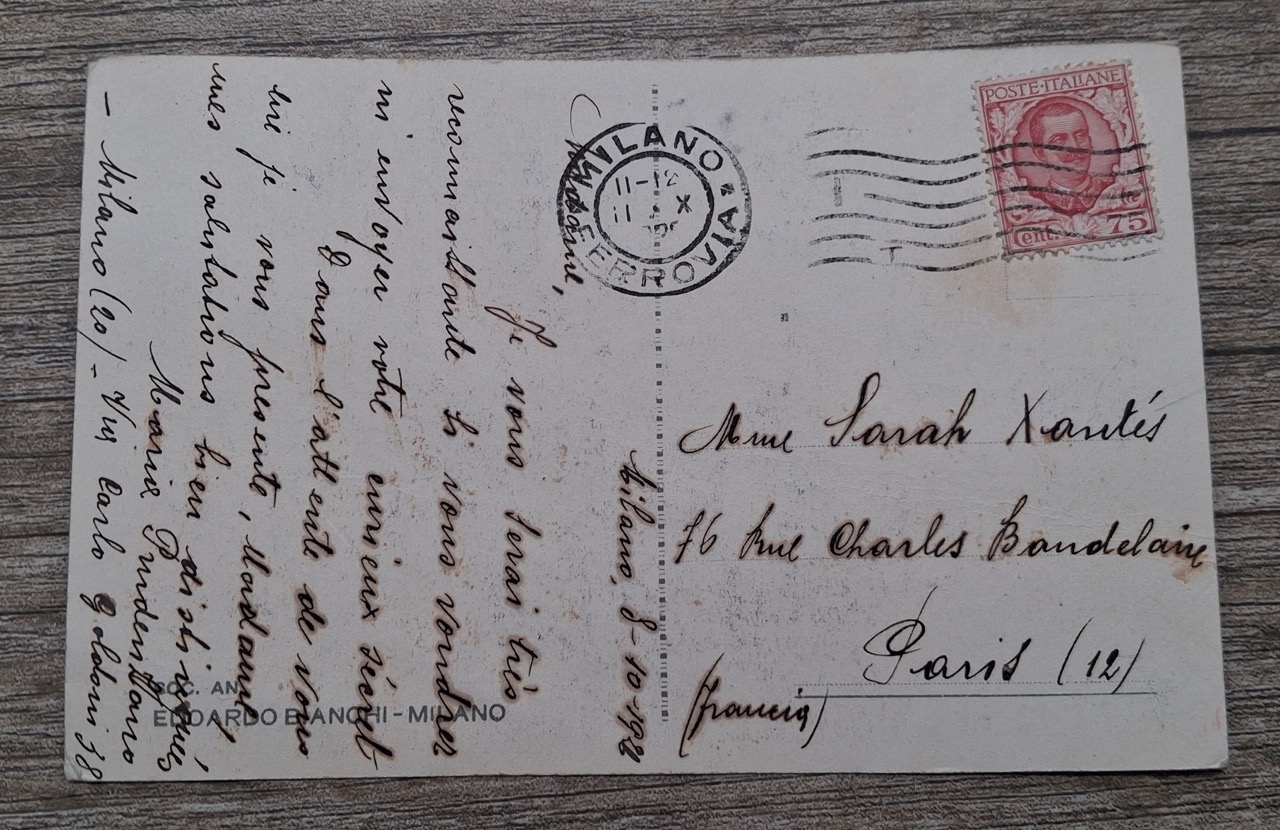 Milano, 8-10-192
Madame,
Je vous serai très
reconnaissante si vous voudrez
m'envoyer votre curieux sécret
Dans l'attente de vous
lire je vous presente, Madame,
mes salutations bien distinguées,
Maria
- Milano (20) - Via Carlo Goldoni 38
MILANO
FERROVIA
X
POSTE·ITALIANE
Cent. 75
Mme Sarah Xantés
76 Rue Charles Baudelaire
Paris (12)
(Francia)
SOC. AN.
EDOARDO BIANCHI - MILANO